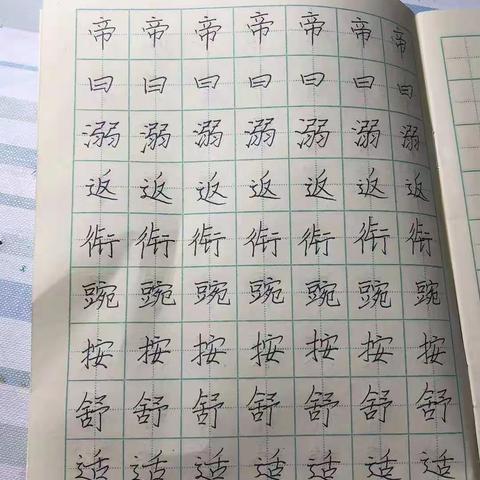 帝帝帝帝帝帝帝
曰曰曰曰曰曰曰
溺溺溺溺溺溺溺
返返返返返返返
衔衔衔衔衔衔衔
豌豌豌豌豌豌豌
按按按按按按按
舒舒舒舒舒舒舒
适适适适适适适